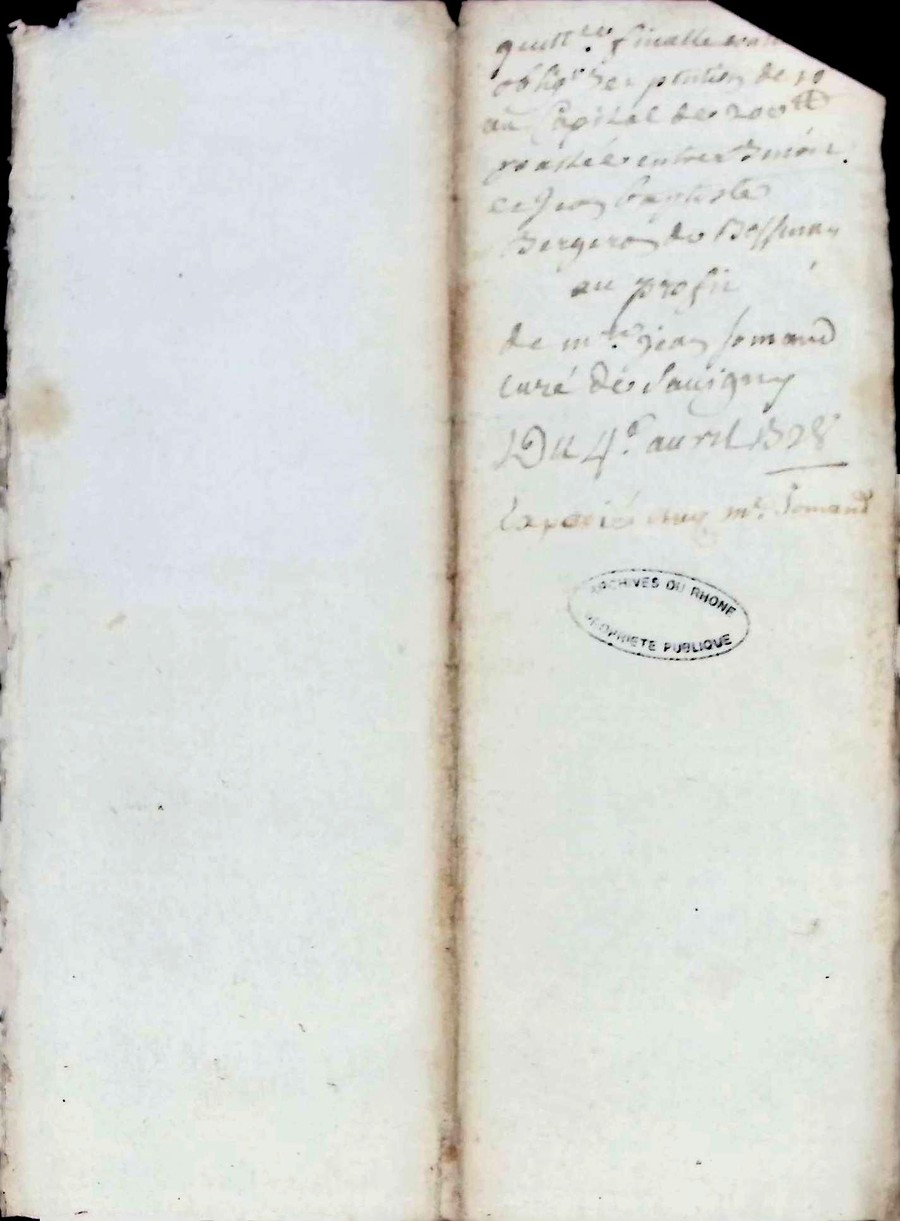 quitt.ce finalle
oblig.on et pention de 10
au Capital de 200 ₶
passée entre Simon
et Jean Baptiste
Bergeron de
au profit
de m.re Jean Jomand
curé de Sauigny
Du 4.e auril 1728
Expedié m.r Jomand
ARCHIVES DU RHONE
PROPRIETE PUBLIQUE